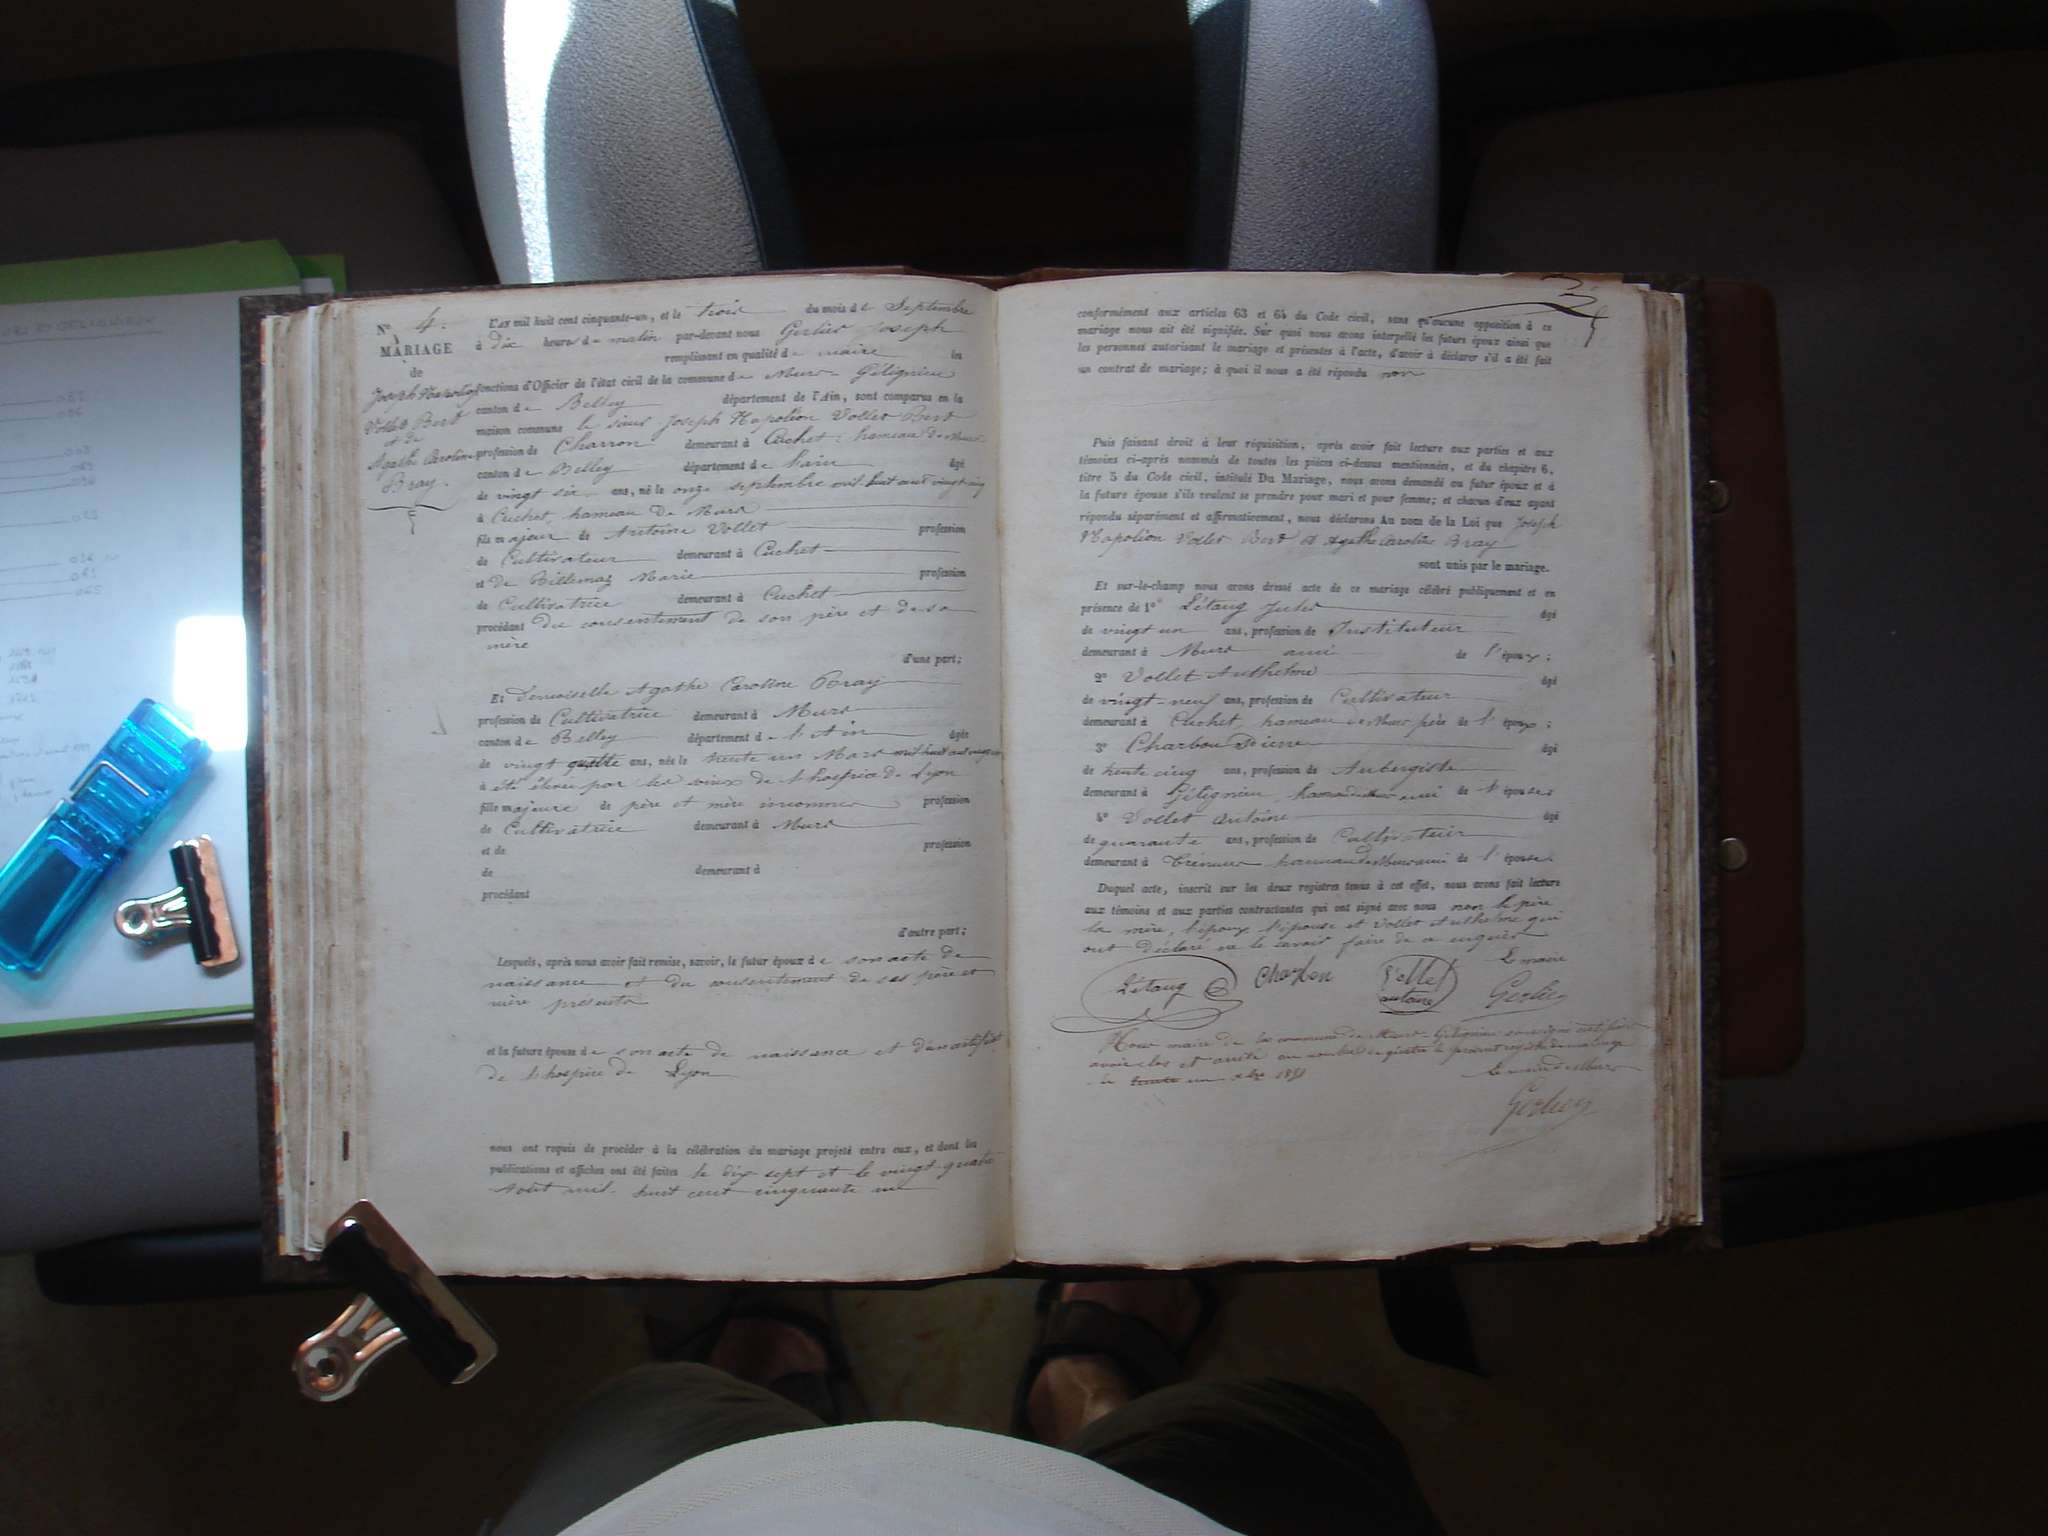 N° 4.
MARIAGE
de
Joseph Napoléon
Vollet Bert
et de
Agathe Caroline
Bray.
L'AN mil huit cent cinquante-un, et le trois du mois de Septembre
à Dix heures de matin par-devant nous Gerlier Joseph
remplissant en qualité de maire les
fonctions d'Officier de l'état civil de la commune de Murs-Gélignieu
canton de Belley département de l'Ain, sont comparus en la
maison commune le sieur Joseph Napoléon Vollet Bert
profession de Charron demeurant à Cuchet, hameau de Murs
canton de Belley département de l'ain âgé
de vingt six ans, né le onze septembre mil huit cent vingt cinq
à Cuchet, hameau de Murs
fils majeur de Antoine Vollet profession
de Cultivateur demeurant à Cuchet
et de Billemaz Marie profession
de Cultivatrice demeurant à Cuchet
procédant du consentement de son père et de sa
mère
d'une part;
Et Demoiselle Agathe Caroline Bray
profession de Cultivatrice demeurant à Murs
canton de Belley département de l'Ain âgée
de vingt quatre ans, née le trente un Mars mil huit cent vingt
à été élevée par les soins de l'hospice de Lyon
fille majeure de père et mère inconnus profession
de Cultivatrice demeurant à Murs
et de profession
de demeurant à
procédant
d'autre part;
Lesquels, après nous avoir fait remise, savoir, le futur époux de son acte de
naissance et du consentement de ses père et
mère présents
et la future épouse de son acte de naissance et d'un certificat
de l'hospice de Lyon
nous ont requis de procéder à la célébration du mariage projeté entre eux, et dont les
publications et affiches ont été faites le dix sept et le vingt-quatre
Août mil-huit cent cinquante un
conformément aux articles 63 et 64 du Code civil, sans qu'aucune opposition à ce
mariage nous ait été signifiée. Sur quoi nous avons interpellé les futurs époux ainsi que
les personnes autorisant le mariage et présentes à l'acte, d'avoir à déclarer s'il a été fait
un contrat de mariage; à quoi il nous a été répondu non
Puis faisant droit à leur réquisition, après avoir fait lecture aux parties et aux
témoins ci-après nommés de toutes les pièces ci-dessus mentionnées, et du chapitre 6,
titre 5 du Code civil, intitulé Du Mariage, nous avons demandé au futur époux et à
la future épouse s'ils veulent se prendre pour mari et pour femme; et chacun d'eux ayant
répondu séparément et affirmativement, nous déclarons Au nom de la Loi que Joseph
Napoléon Vollet Bert et Agathe Caroline Bray
sont unis par le mariage.
Et sur-le-champ nous avons dressé acte de ce mariage célébré publiquement et en
présence de 1° Létang Jules âgé
de vingt un ans, profession de Instituteur
demeurant à Murs ami de l'époux;
2° Vollet Anthelme âgé
de vingt-neuf ans, profession de Cultivateur
demeurant à Cuchet, hameau de Murs de l'époux;
3° Charbon Pierre âgé
de trente cinq ans, profession de Aubergiste
demeurant à Gélignieu, hameau de Murs ami de l'épouse
4° Vollet Antoine âgé
de quarante ans, profession de Cultivateur
demeurant à hameau de Murs ami de l'épouse.
Duquel acte, inscrit sur les deux registres tenus à cet effet, nous avons fait lecture
aux témoins et aux parties contractantes qui ont signé avec nous non le père
la mère, l'époux l'épouse et Vollet Anthelme qui
ont déclaré ne le savoir faire de ce enquis
Le maire
Létang Charbon Vollet Gerlier
antoine
Nous maire de la commune de Murs-Gélignieu soussigné certifions
avoir clos et arrêté au nombre de quatre le présent registre de mariage
le trente un xbre 1851
Le maire de Murs
Gerlier